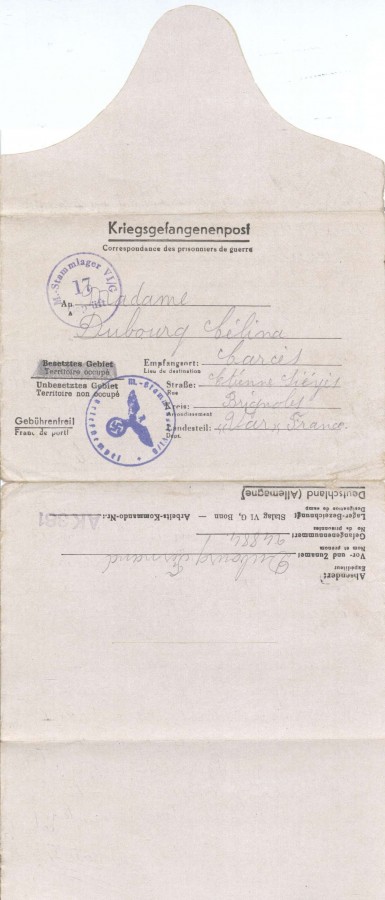 Kriegsgefangenenpost
Correspondance des prisonniers de guerre
M.-Stammlager VI/G
17
An Madame
A
Dubourg Célina
Besetztes Gebiet
Territoire occupé
Empfangsort: Carcès
Lieu de destination
Unbesetztes Gebiet
Territoire non occupé
Straße:
Rue
Kreis: Brignoles
Arrondissement
Gebührenfrei!
Franc de port!
Landesteil: "Var" France
Dept.
Deutschland (Allemagne)
Lager-Bezeichnung: Stalag VI G, Bonn — Arbeits-Kommando-Nr.: AK 381
Désignation du camp
Gefangenennummer: 24884
No de prisonnier
Vor- und Zuname: Dubourg Fernand
Nom et prénom
Absender:
Expéditeur